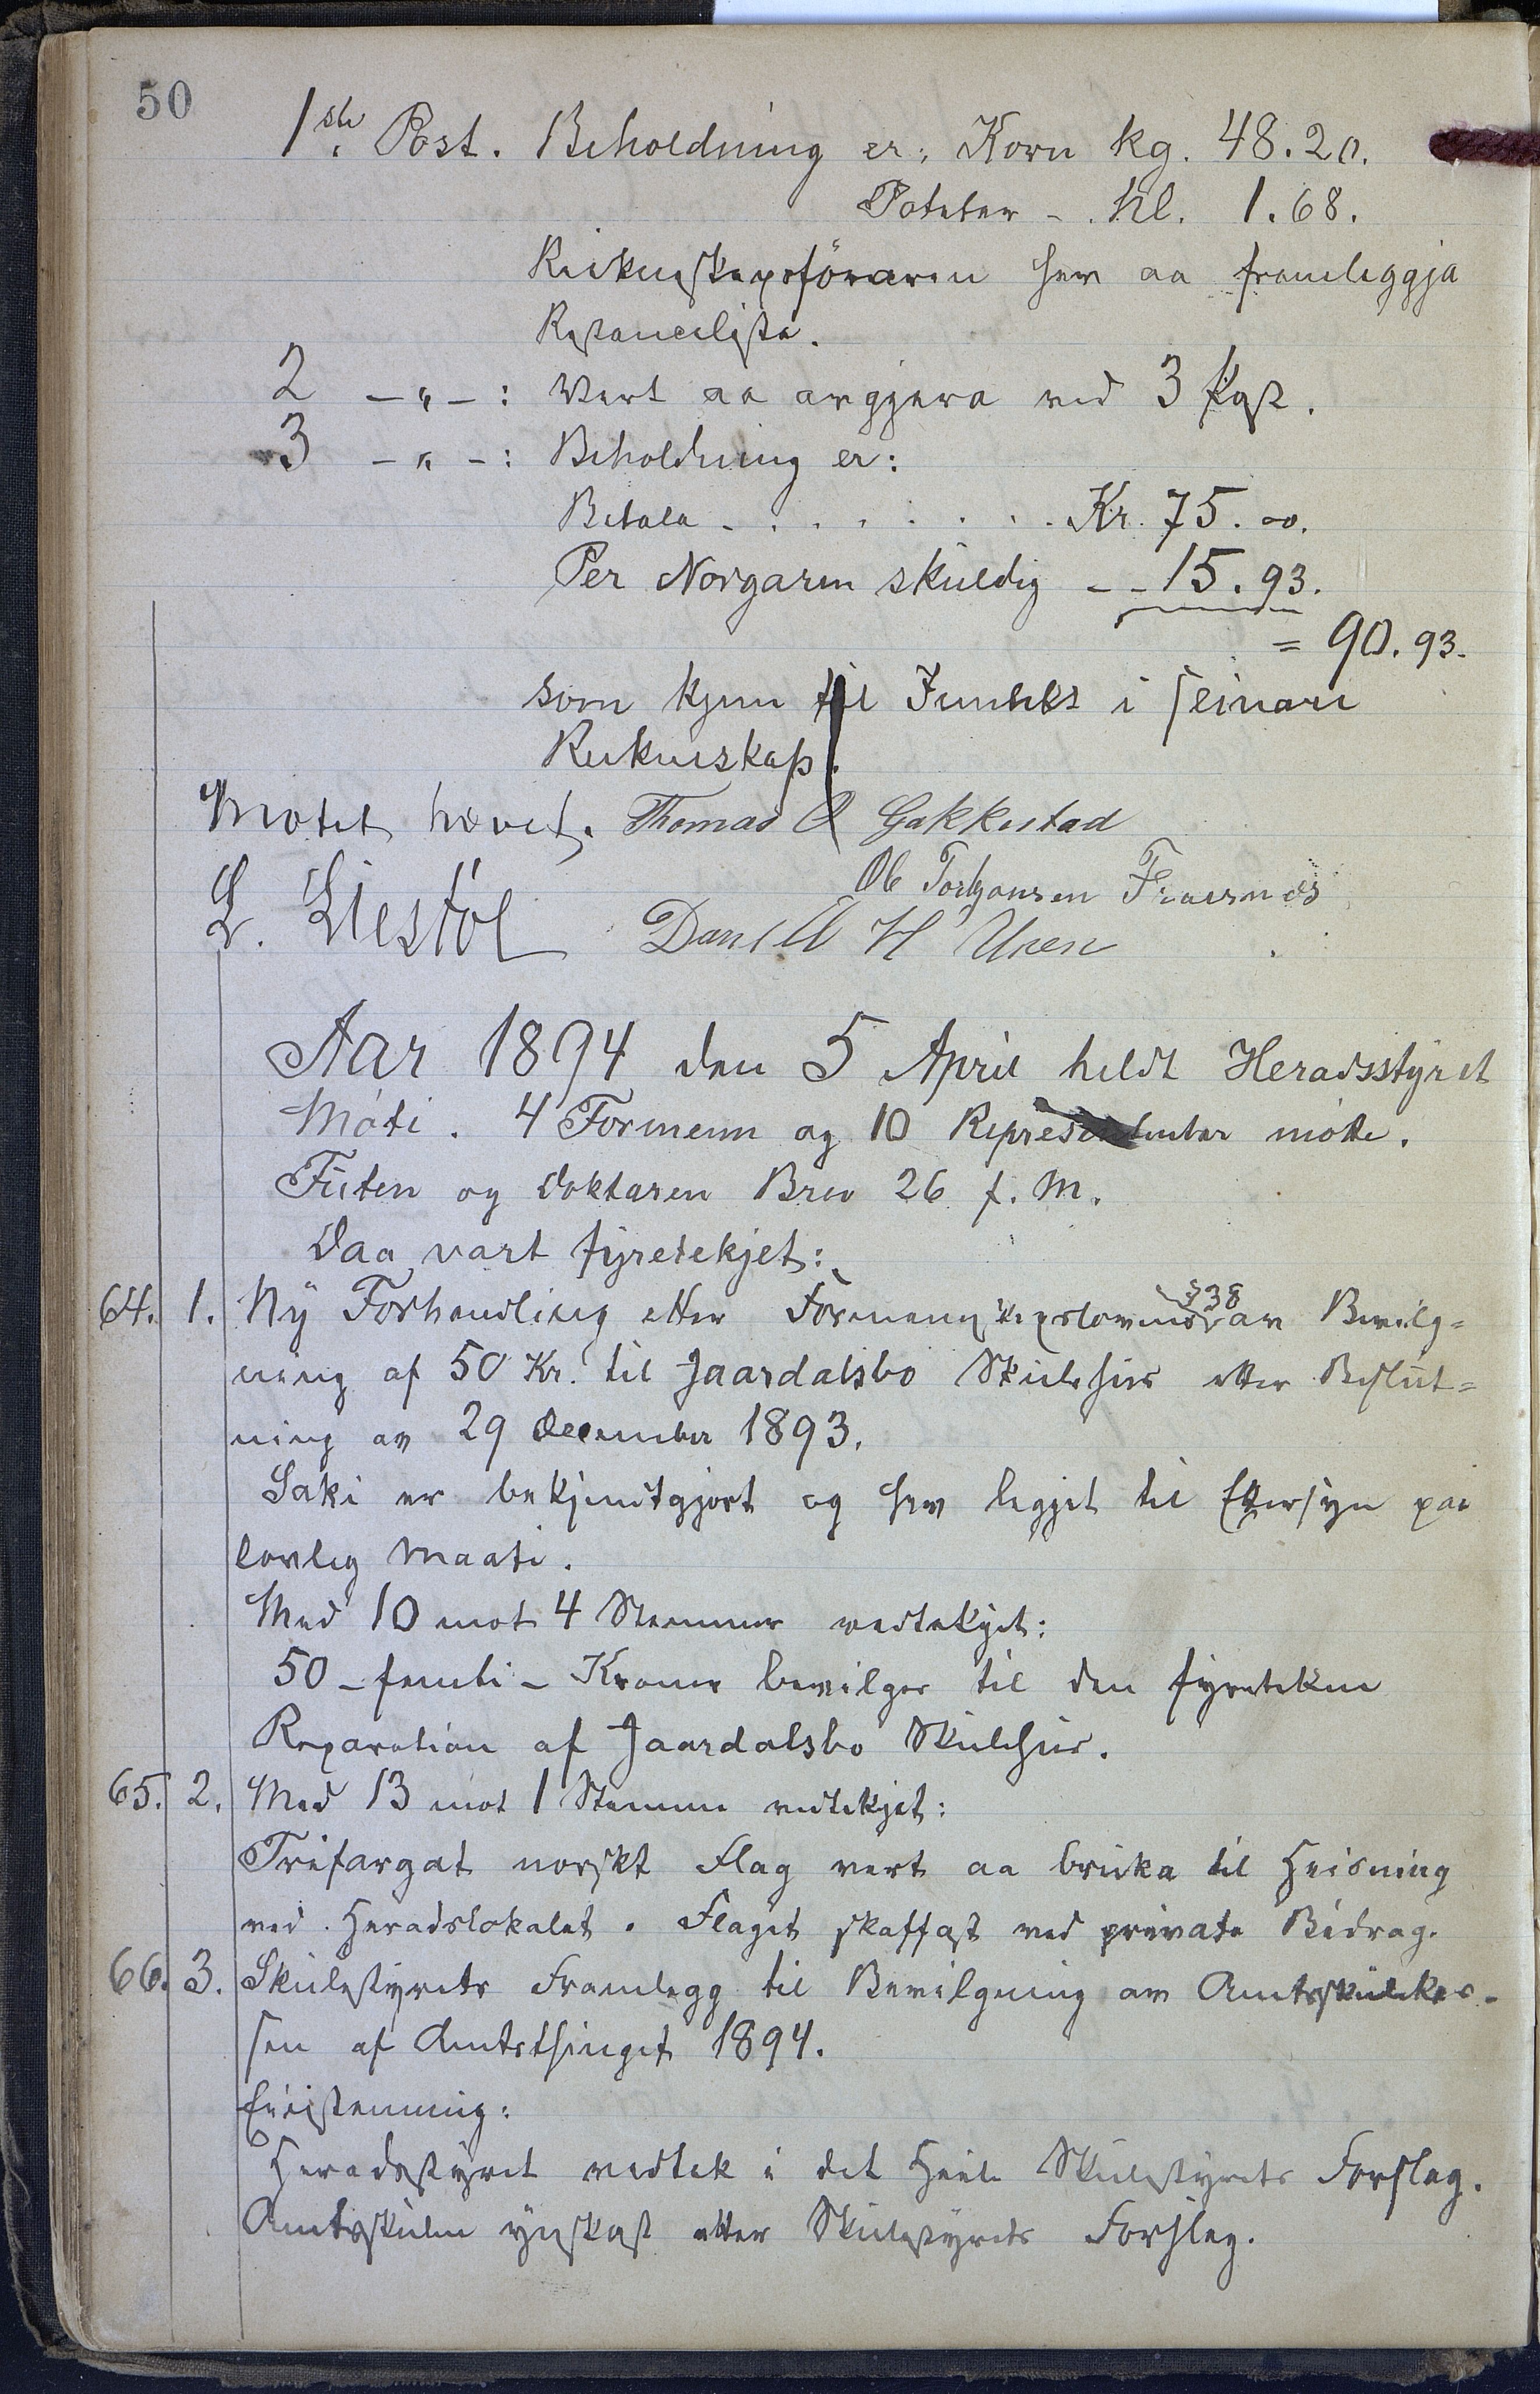 50
1ste Post. Beholdning er: Korn kg. 48.20.
Poteter - . hl. 1.68.
Reikneskapsföraren hev aa framleggja
Restanselista.
2 -„-: Vert aa avgjera ved 3 Post.
3 -„-: Beholdning er:
Betala - . . . . . . . Kr. 75. 00.
Per Norgaren skuldig - - 15. 93.
= 90. 93.
som kjem til Inntekt i seinare
Rekneskap.
Motet hævet. Thomas O Gakkestad
Ole Torkjonsen Fraisnæs
L. Liestöl Daniel H Uven
Aar 1894 den 5 April heldt Heradsstyret
Möte. 4 Formenn og 10 Representantar mötte.
Futen og doktaren Brev 26 f. M.
Daa vart fyretekjet:
64. 1. Ny Forhandling etter Formannskapslovens §38 av Bevilg=
ning af 50 Kr. til Jaardalsbö Skulehus etter Beslut=
ning av 29 December 1893.
Saki er bekjendtgjort og hev legjet til Ettersyn paa
lovleg Maate.
Med 10 mot 4 Stemmer vedtekjet:
50 - femti - Kroner bevilges til den fyretekne
Reparation af Jaardalsbö Skulehus.
65. 2. Med 13 mot 1 Stemme vedtekjet:
Trifargat norskt Flag vert aa bruka til Heisning
ved Heradslokalet. Flaget skaffast ved private Bidrag.
66. 3. Skulestyrets Framlegg til Bevilgning av Amtsskulekas-
sen af Amtsthinget 1894.
Einstemmig:
Heradsstyret vedtek i det Heile Skulestyrets Forslag.
Amtsskulen ynskast etter Skulestyrets Forslag.